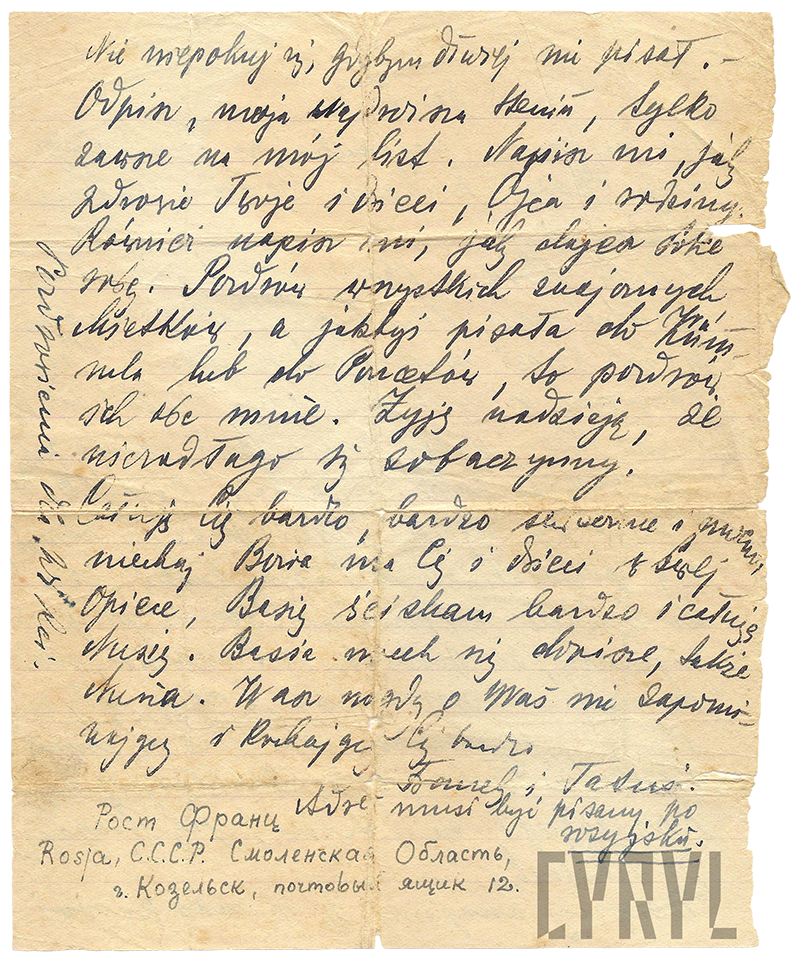 Nie niepokuj się, gdybym dłużej nie pisał. –
Odpisz, moja Najdroższa Heniu, tylko
zawsze na mój list. Napisz mi, jak
zdrowie Twoje i Dzieci, Ojca i rodziny.
Również napisz mi, jak dajecie sobie
radę. Pozdrów wszystkich znajomych
Mietków, a jakbyś pisała do
lub do, to pozdrów
ich ode mnie. Żyję nadzieją, że
niezadługo się zobaczymy.
Całuję Cię bardzo, bardzo serdecznie i
niechaj Bozia ma Cię i dzieci w swej
Opiece, Basię ściskam bardzo i całuję
Niusię. Basia niech się dopisze, także
Niusia. Wasz nigdy o Was nie zapomi-
nający i Kochający Cię bardzo
Franek i Tatuś.
Pozdrowienia dla
Adres musi być pisany po
rosyjsku.
Рост Франц
Rosja, С.С.С.Р. Смоленская Область,
г. Козельск, почтовый ящик 12.
CYRYL